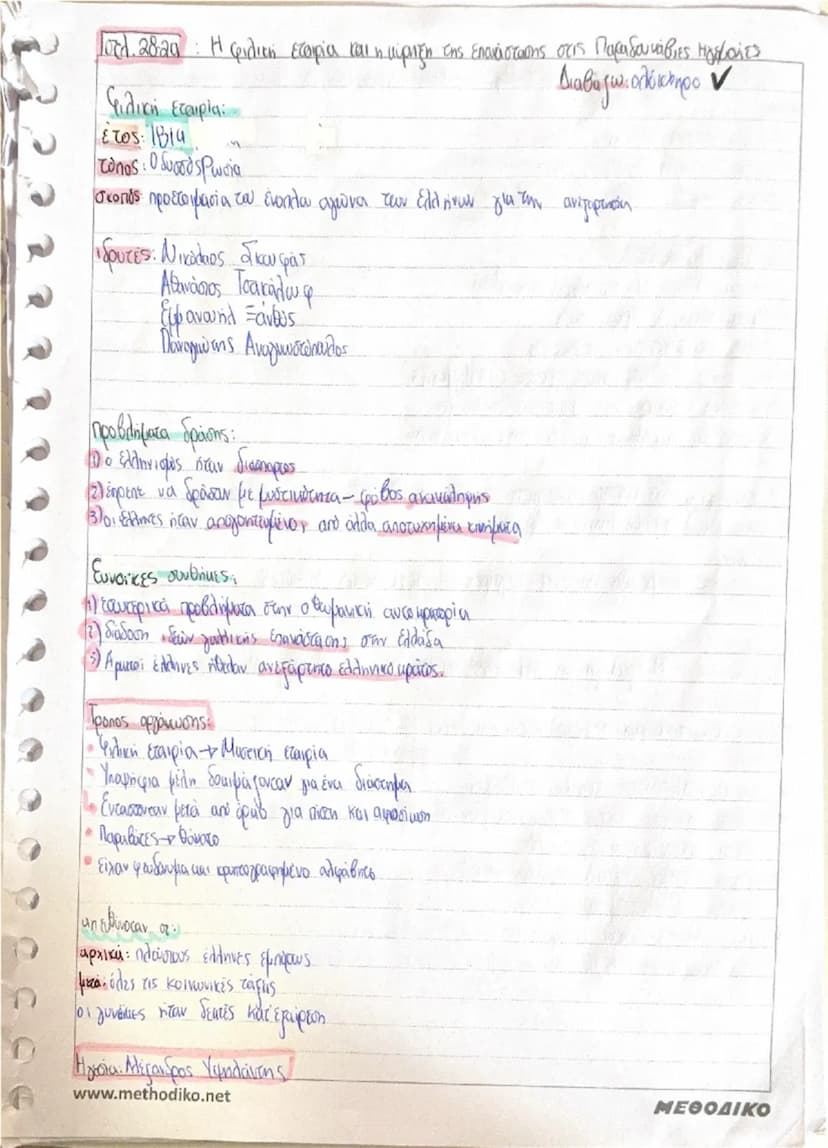 σελ. 28-29: Η φιλική εταιρία και η κήρυξη της επανάστασης στις Παραδουνάβιες Ηγεμονίες
Διαβάζω ολόκληρο ✓
Φιλική εταιρία:
έτος: 1814
τόπος: Οδυσσός Ρωσία
σκοπός προετοιμασία του ένοπλου αγώνα των Ελλήνων για την ανεξαρτησία
ιδρυτές: Νικόλαος Σκουφάς
Αθανάσιος Τσακάλωφ
Εμμανουήλ Ξάνθος
Παναγιώτης Αναγνωστόπουλος
Προβλήματα δράσης:
1) ο ελληνισμός ήταν διάσπαρτος
2) έπρεπε να δράσουν με μυστικότητα - φόβος αποκάλυψης
3) οι έλληνες ήταν απογοητευμένοι από άλλα αποτυχημένα κινήματα
Ευνοϊκές συνθήκες:
1) εσωτερικά προβλήματα στην οθωμανική αυτοκρατορία
2) διάδοση ιδεών γαλλικής επανάστασης στην Ελλάδα
3) Αρκετοί έλληνες ήθελαν ανεξάρτητο ελληνικό κράτος.
Τρόπος οργάνωσης:
• Φιλική εταιρία → Μυστική εταιρία
• Υποψήφια μέλη δοκιμάζονταν για ένα διάστημα
↳ Εντάσσονταν μετά από όρκο για πίστη και αφοσίωση
• Παραβάτες → θάνατο
• Είχαν ψευδώνυμα και κρυπτογραφημένο αλφάβητο
απευθύνονταν σε:
αρχικά: πλούσιους έλληνες εμπόρους
μετά: όλες τις κοινωνικές τάξεις
οι γυναίκες ήταν δεκτές κατ' εξαίρεση
Ηγεσία: Αλέξανδρος Υψηλάντης
www.methodiko.net
ΜΕΘΟΔΙΚΟ